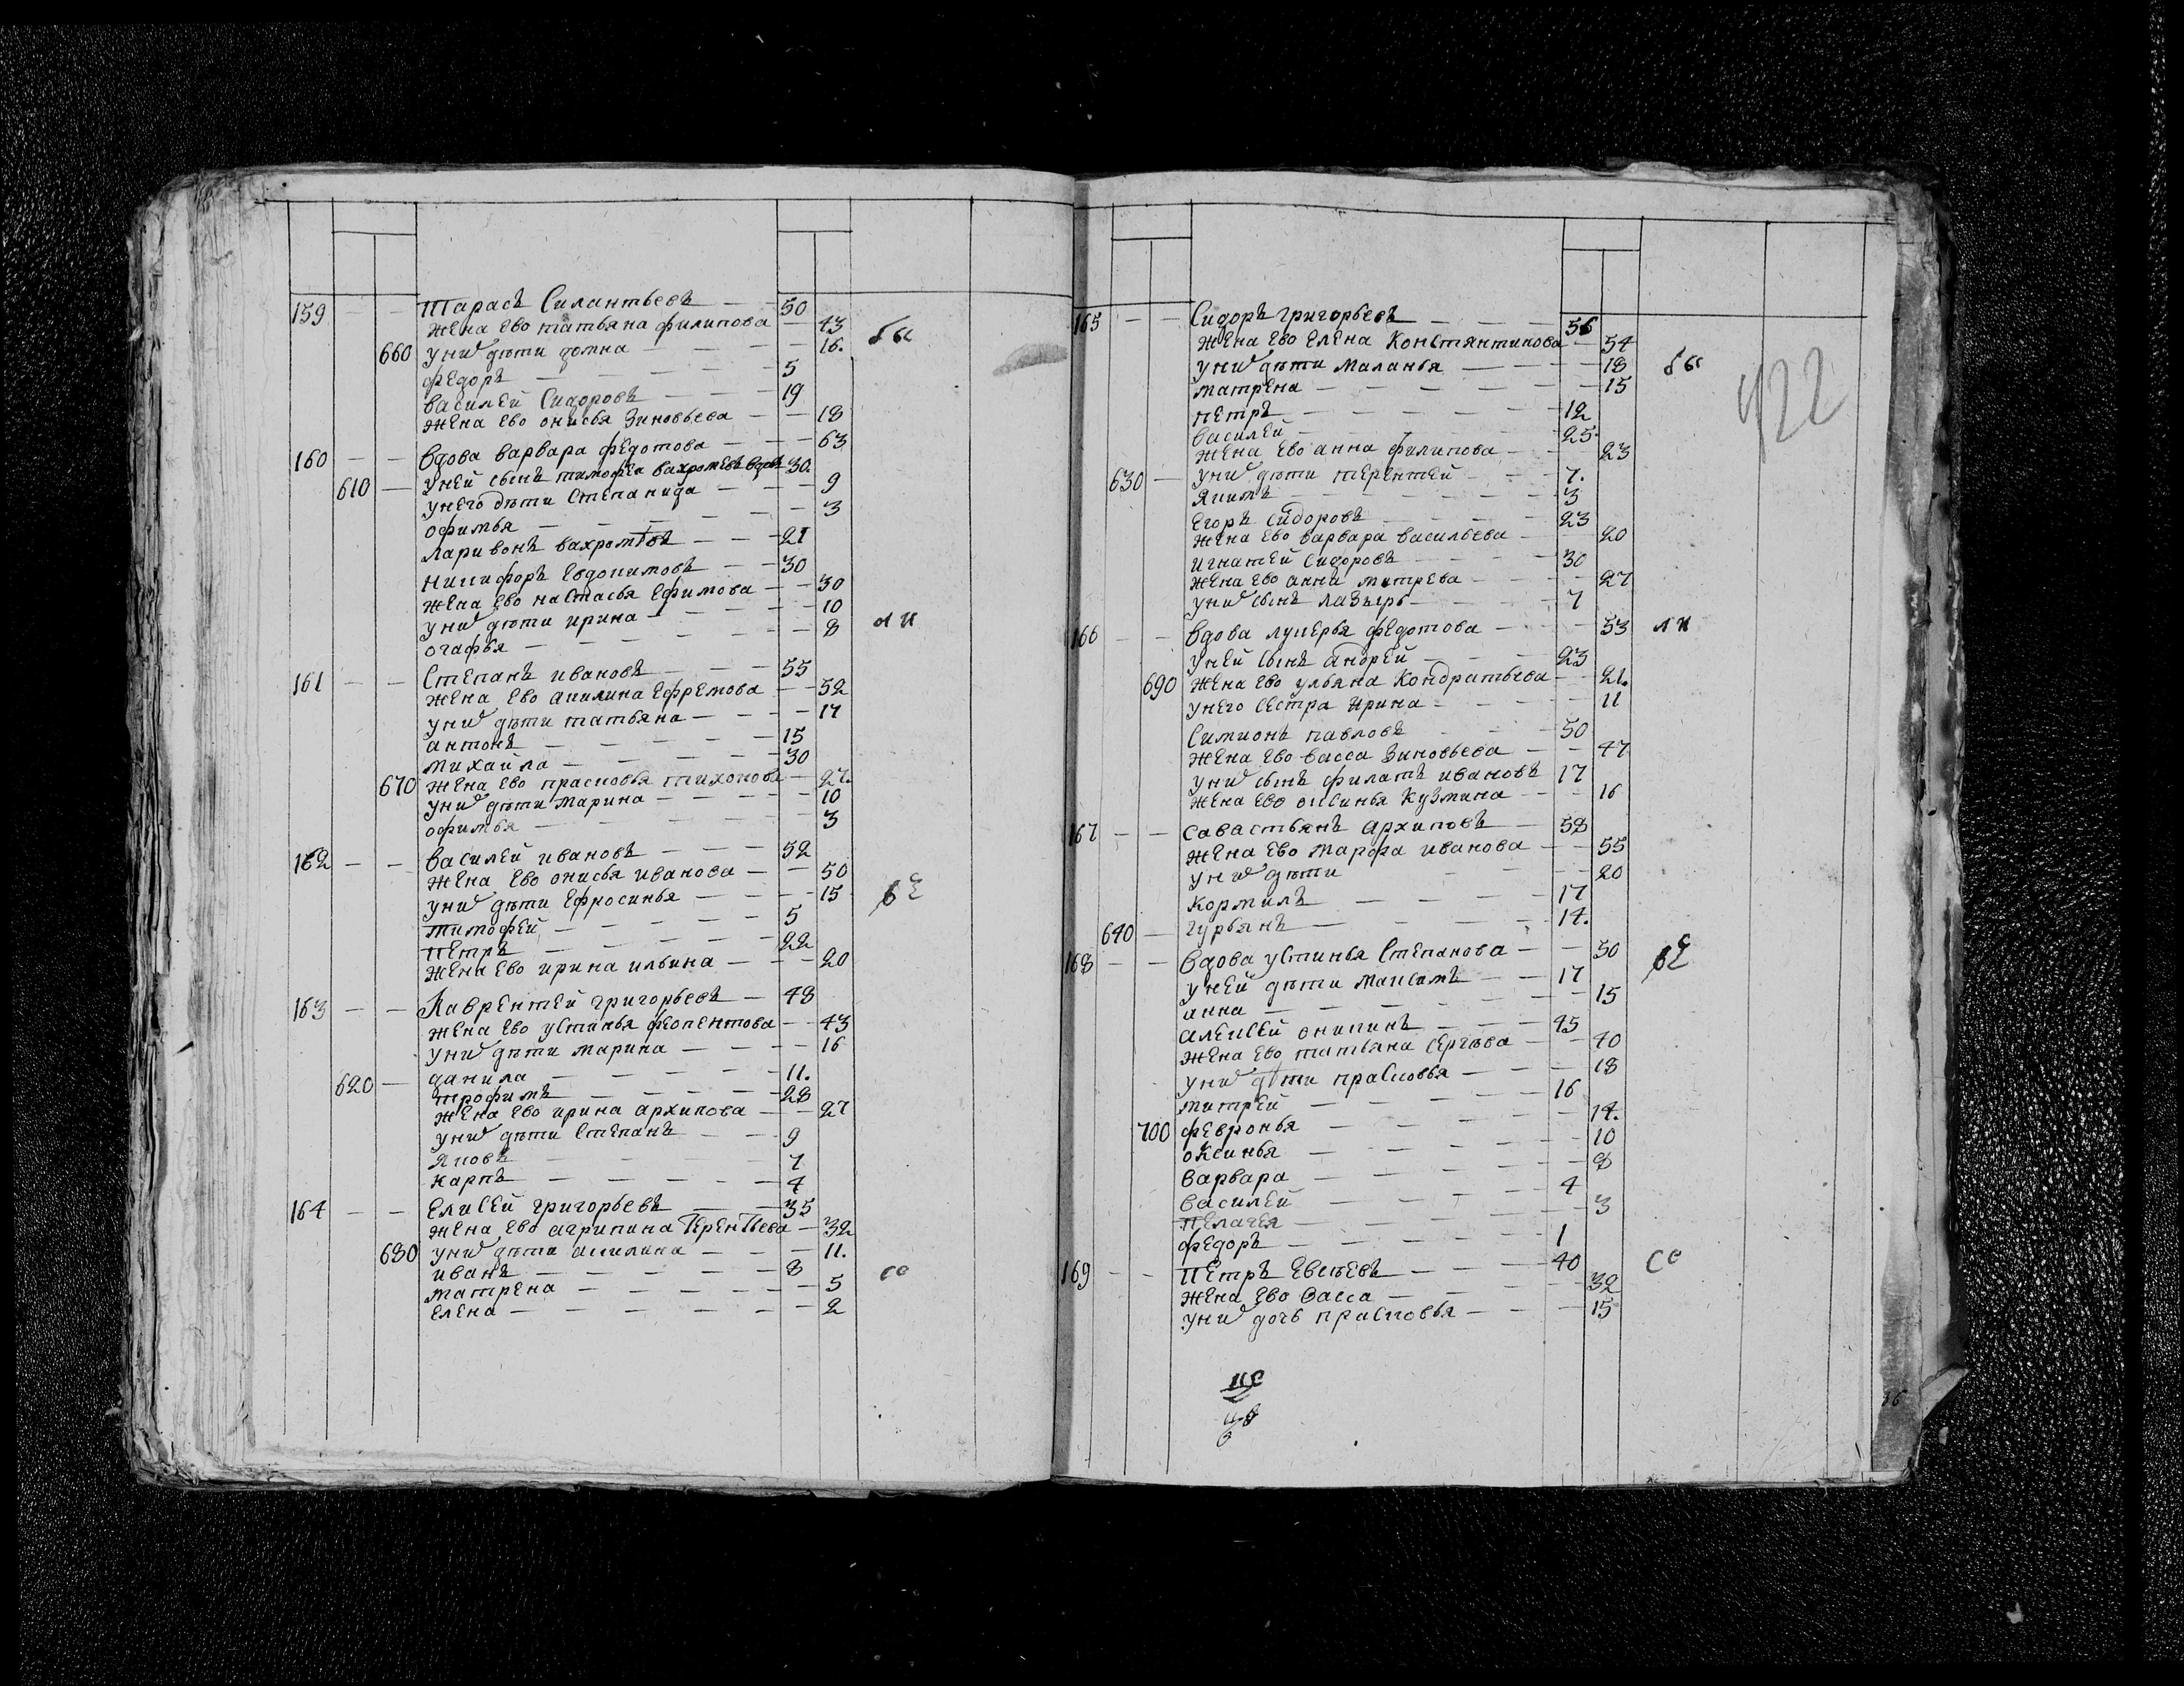 159 — — Тарасъ Силантьевъ — — 50
Жена ево татьяна филипова — 43
660 уних дѣти домна — — — — 16.
федоръ — — — — 5
василей Сидоровъ — — — 19
жена ево онисья Зиновьева — — 18
160 — — вдова варвара федотова — — — 63
610 — уней сынъ тимофеа вахромѣевъ вдовъ 30
унего дѣти Степанида — — — 9
офимья — — — — — 3
Ларивонъ вахромѣевъ — — — 21
Никифоръ Евдокимовъ — — 30
жена ево настасья Ефимова — — 30
уних дѣти ирина — — — — — 10
огафья — — — — — — 8
161 — — Степанъ ивановъ — — — 55
жена ево акилина Ефремова — — 52
уних дѣти татьяна — — — — 17
антонъ — — — — — 15
михайла — — — — — 30
670 жена ево прасковья тихонова — 27.
уних дѣти марина — — — — — 10
офимья — — — — — — 3
162 — — василей ивановъ — — — 52
жена ево онисья иванова — — 50
уних дѣти Ефросинья — — — — 15
тимофей — — — — — 5
петръ — — — — — 22
жена ево ирина ильина — — — 20
163 — — Лаврентей григорьевъ — 48
жена ево устинья феопентова — — 43
уних дѣти марина — — — — 16
620 — данила — — — — — 11.
трофимъ — — — — — 28
жена ево ирина архипова — — 27
уних дѣти Степанъ — — — 9
Яковъ — — — — — 7
карпъ — — — — — — 4
164 — — Елисей григорьевъ — — 35
жена ево агрипина Терентьева — 32
680 уних дѣти акилина — — — — 11.
иванъ — — — — — — 8
матрена — — — — — — — 5
елена — — — — — — — 2
165 — — Сидоръ григорьевъ — — — 56
жена ево елена Константинова — 54
уних дѣти маланья — — — — 18
матрена — — — — — — 15
петръ — — — — — — 12
василей — — — — — — 25
жена ево анна филипова — — 23
630 — уних дѣти терентей — — — 7.
Якимъ — — — — — — 3
егоръ сидоровъ — — — — 23
жена ево варвара васильева — 20
игнатей сидоровъ — — — 30
жена ево анна митрева — — — — 27
уних сынъ лазырь — — — — 7
166 — — вдова лукерья федотова — — 53
уней сынъ андрей — — — 23
690 жена ево ульяна Кондратьева — — 21.
унего сестра ирина — — — — 11
симионъ павловъ — — 50
жена ево васса Зиновьева — — 47
уних сынъ филатъ ивановъ 17
жена ево оксинья Кузмина — — 16
167 — — савастьянъ архиповъ — 58
жена ево марфа иванова — — 55
уних дѣти — — — 20
Кормилъ — — — — 17
640 — гурьянъ — — — — — 14.
168 — — вдова устинья Степанова — — 50
уней дѣти максимъ — — 17
анна — — — — — — 15
алексей оникинъ — — — 45
жена ево татьяна сергѣева — — 40
уних дѣти прасковья — — — 18
митрей — — — — — 16
700 февронья — — — — — — 14.
оксинья — — — — — 10
варвара — — — — — 8
василей — — — — 4
пелагея — — — — — 3
федоръ — — — — — 1
169 — — петръ Евсѣевъ — — — 40
жена ево васса — — — — 32
уних дочь прасковья — — — 15
422